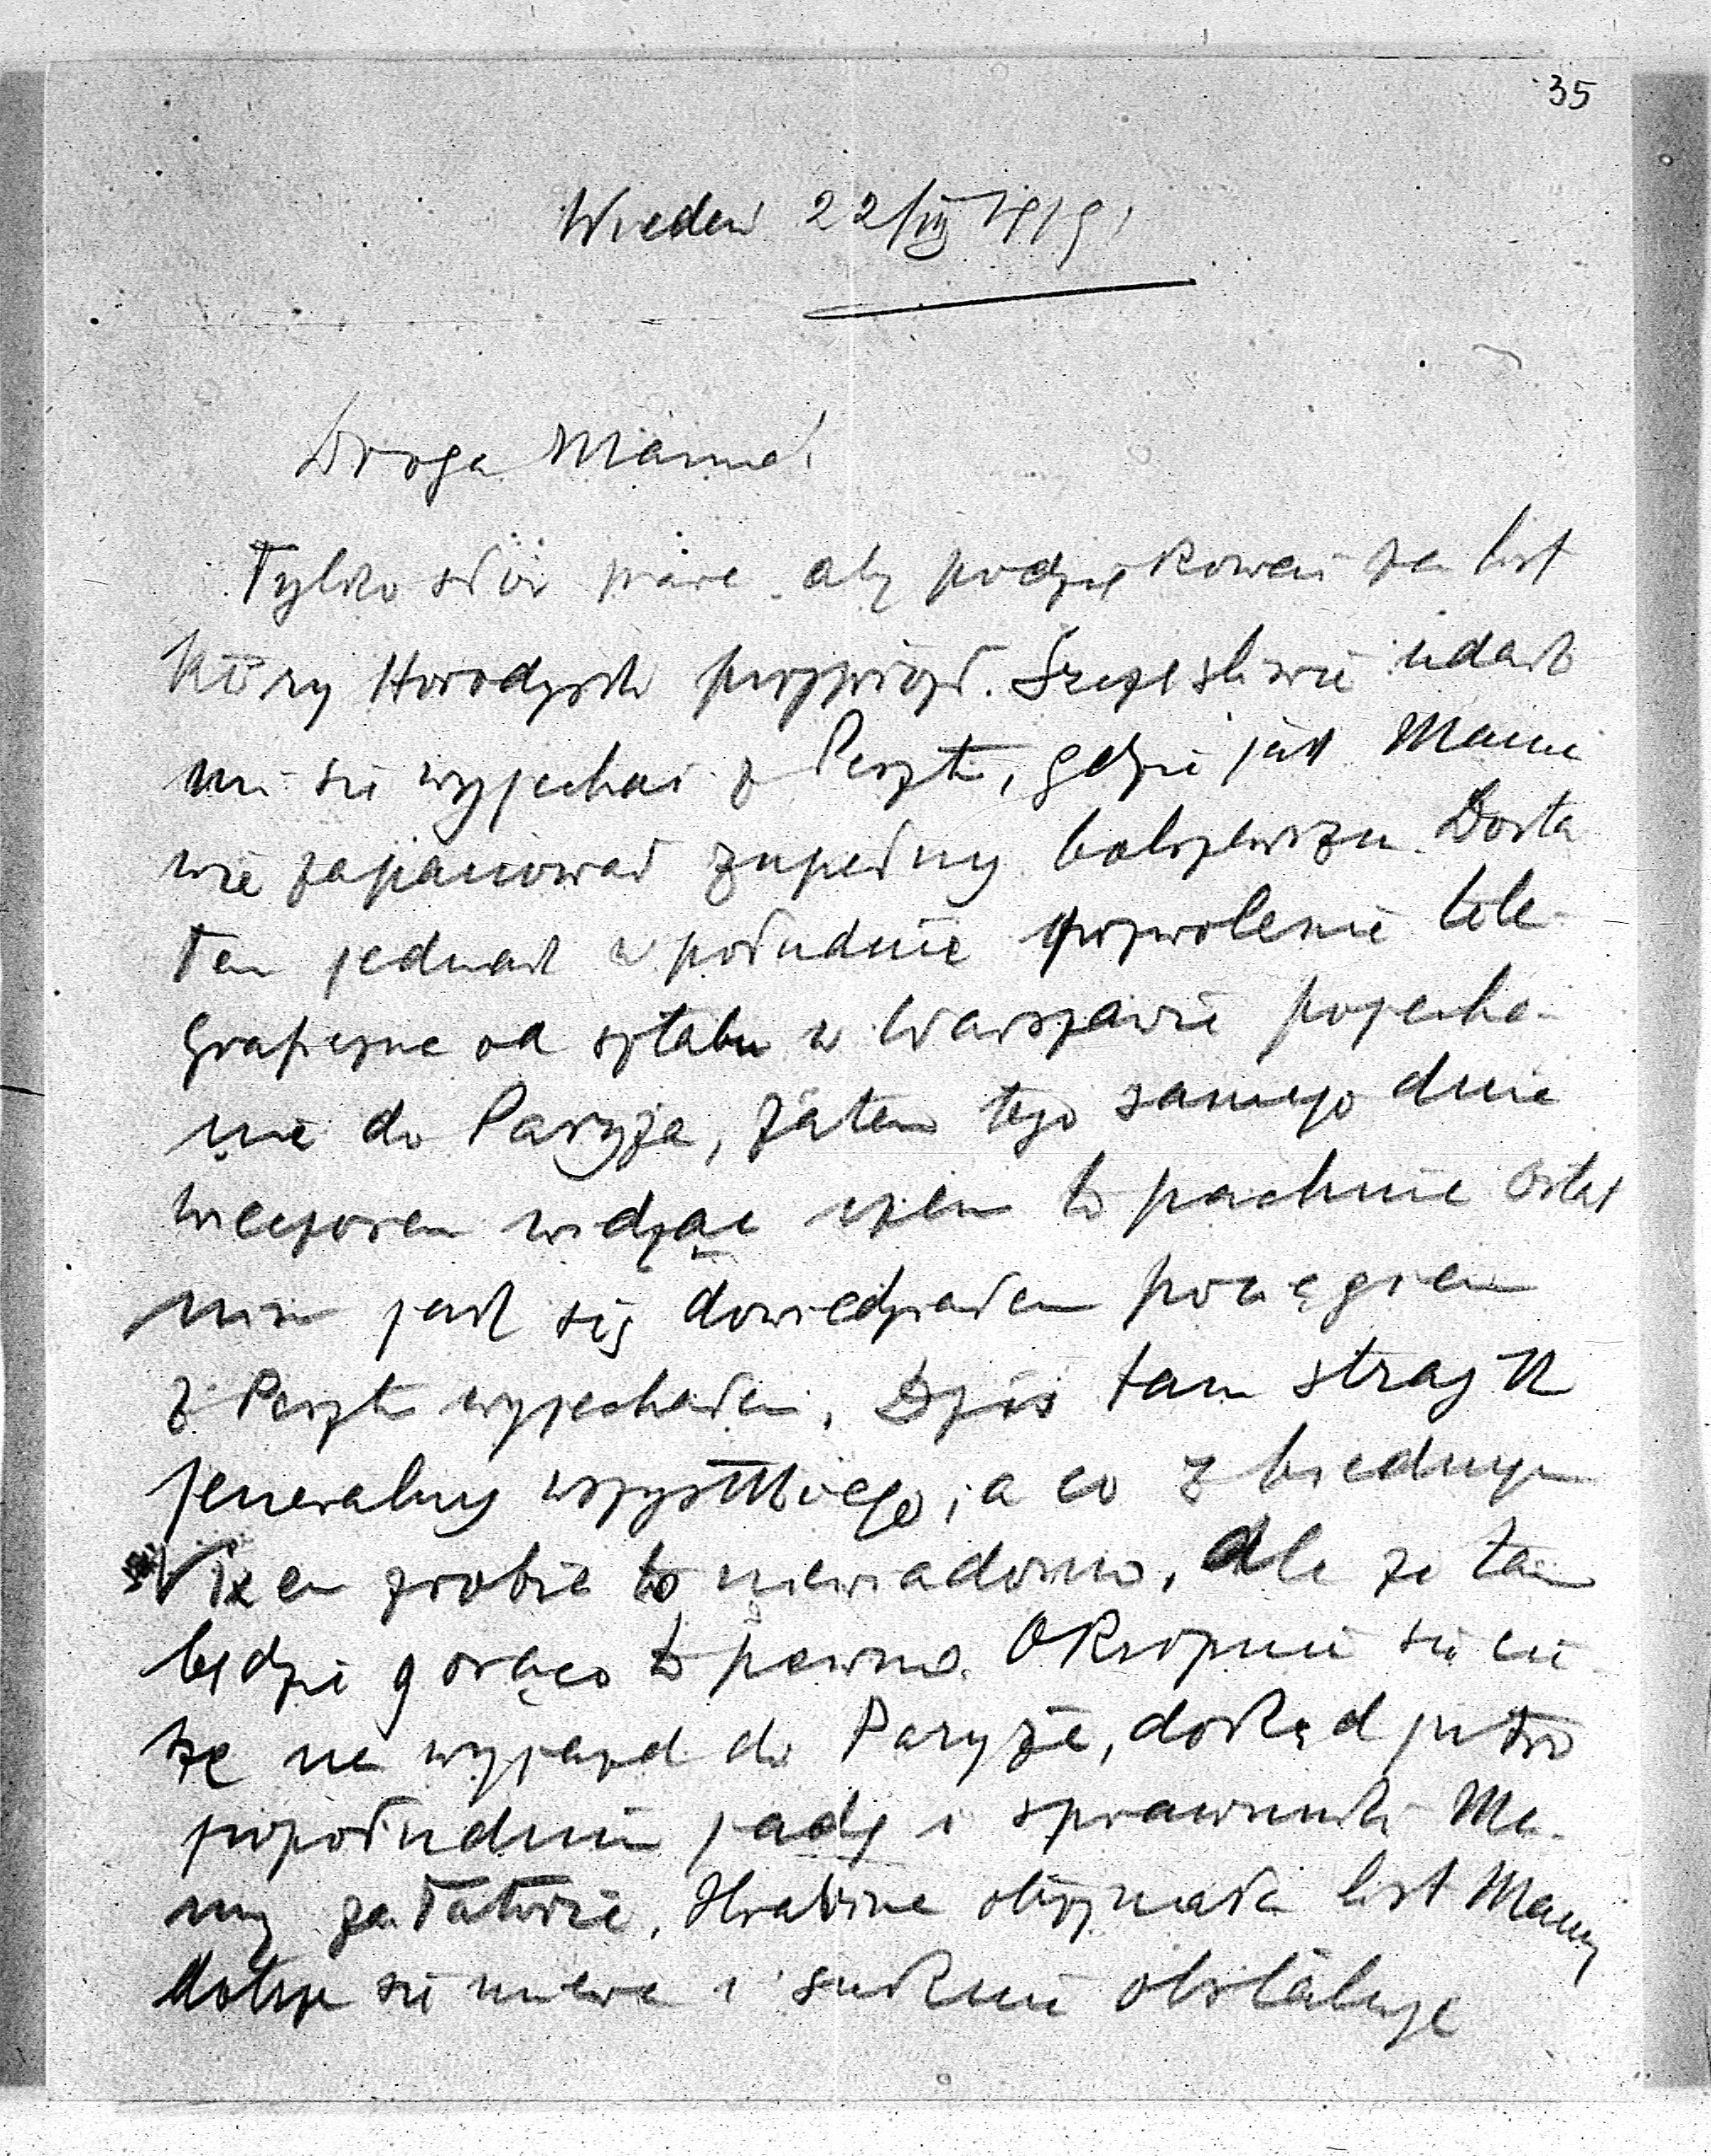 35
Wiedeń 22/III 1919
Droga Mamo!
Tylko słów parę aby podziękować za list
który Horodyski przywiózł. Szczęśliwie udało
mi się wyjechać z Pesztu, gdzie jak Mama
wie zapanował zupełny bolszewizm. Dosta
łem jednak w południe pozwolenie tele-
graficzne od sztabu w Warszawie pojecha-
nia do Paryża, zatem tego samego dnia
wieczorem widząc czem to pachnie ostat
nim jak się dowiedziałem pociągiem
z Pesztu wyjechałem. Dziś tam strajk
jeneralny wszystkiego, a co z biednym
zrobią to niewiadomo, ale że tam
będzie gorąco to pewne. Okropnie się cie
szę na wyjazd do Paryża, dokąd jutro
popołudniu jadę i sprawunki Ma-
my załatwię. Hrabina otrzymała list Mamy
się miewa i suknię obstaluje